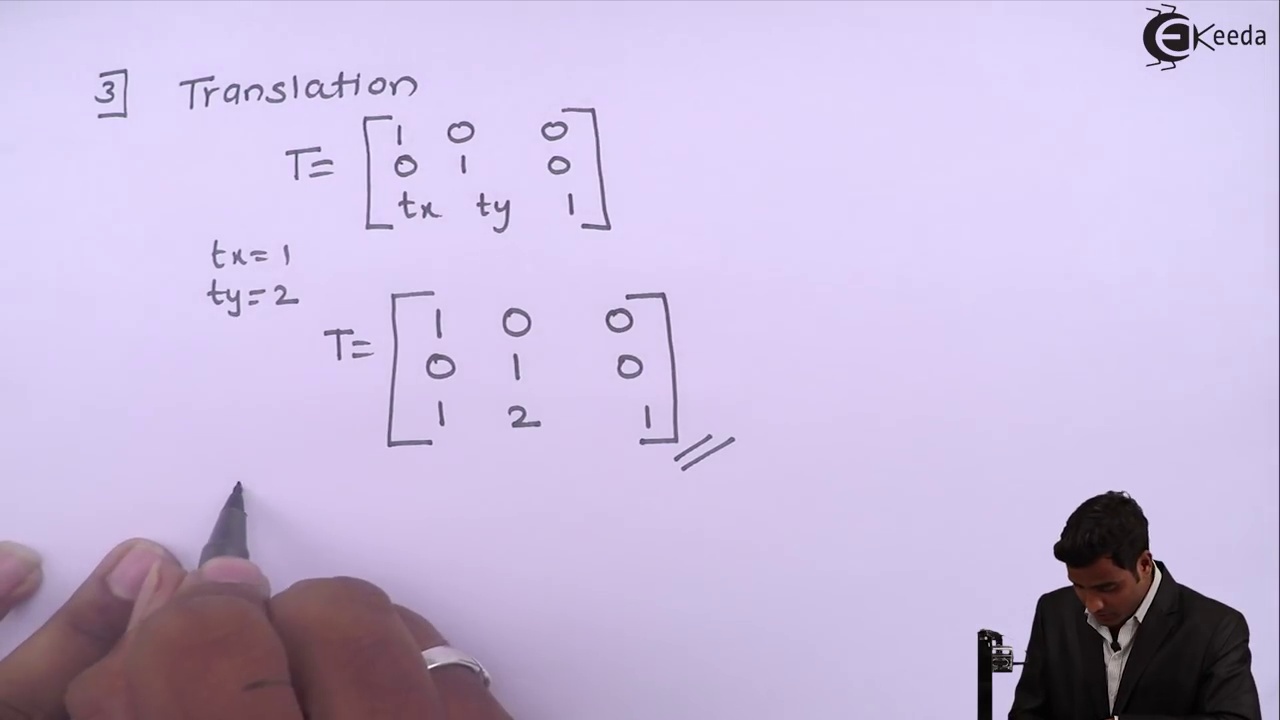 EKeeda
3] Translation
T= [ 1 0 0
0 1 0
tx ty 1 ]
tx=1
ty=2
T= [ 1 0 0
0 1 0
1 2 1 ] //